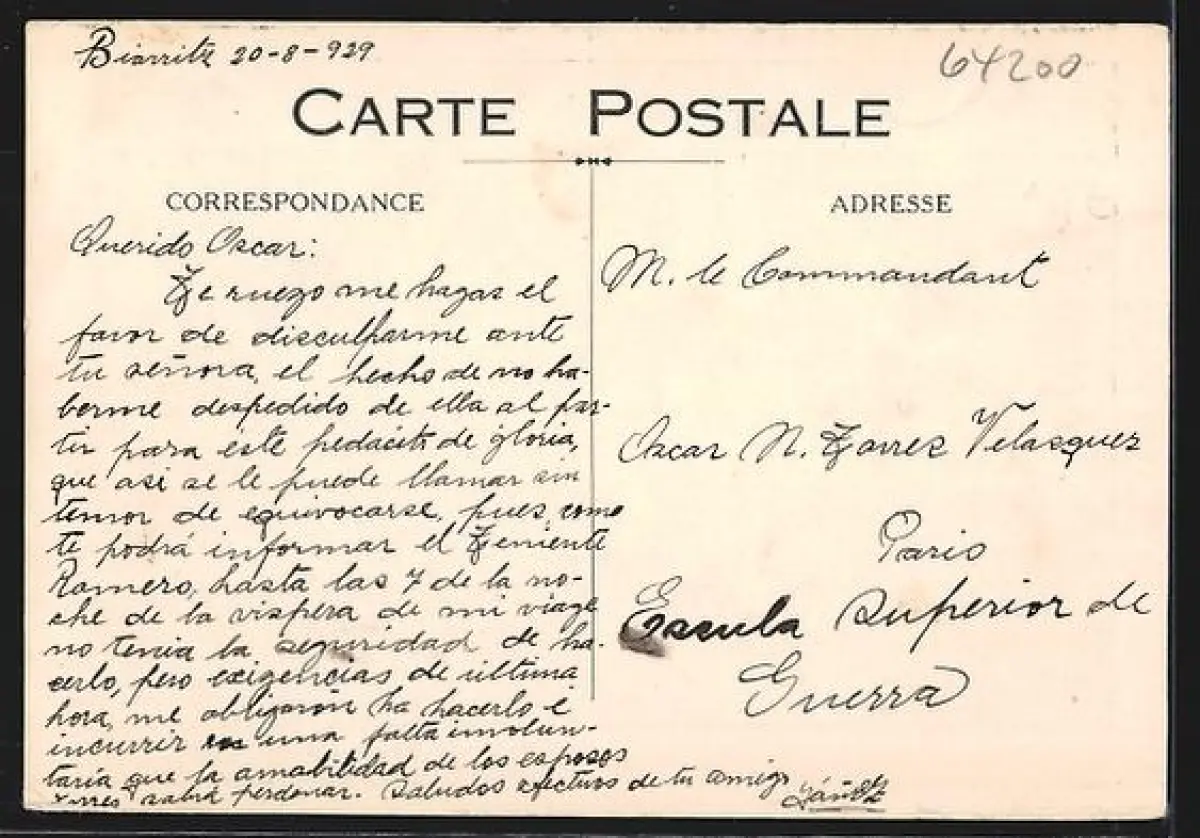 Biarritz 20-8-929
64200
CARTE POSTALE
CORRESPONDANCE
Querido Oscar:
Te ruego me hagas el
favor de disculparme ante
tu señora, el hecho de no ha-
berme despedido de ella al par-
tir para este pedacito de gloria,
que asi se le puede llamar sin
temor de equivocarse, pues, como
te podrá informar el Teniente
Romero, hasta las 7 de la no-
che de la vispera de mi viage
no tenia la seguridad de ha-
cerlo, pero exigencias de ultima
hora, me obligaron ha hacerlo é
incurrir en una falta involun-
taria que la amabilidad de los esposos
Torres sabrá perdonar. Saludos afectuos de tu amigo
ADRESSE
M. le Commandant
Oscar N. Torres Velasquez
Paris
Escuela Superior de
Guerra